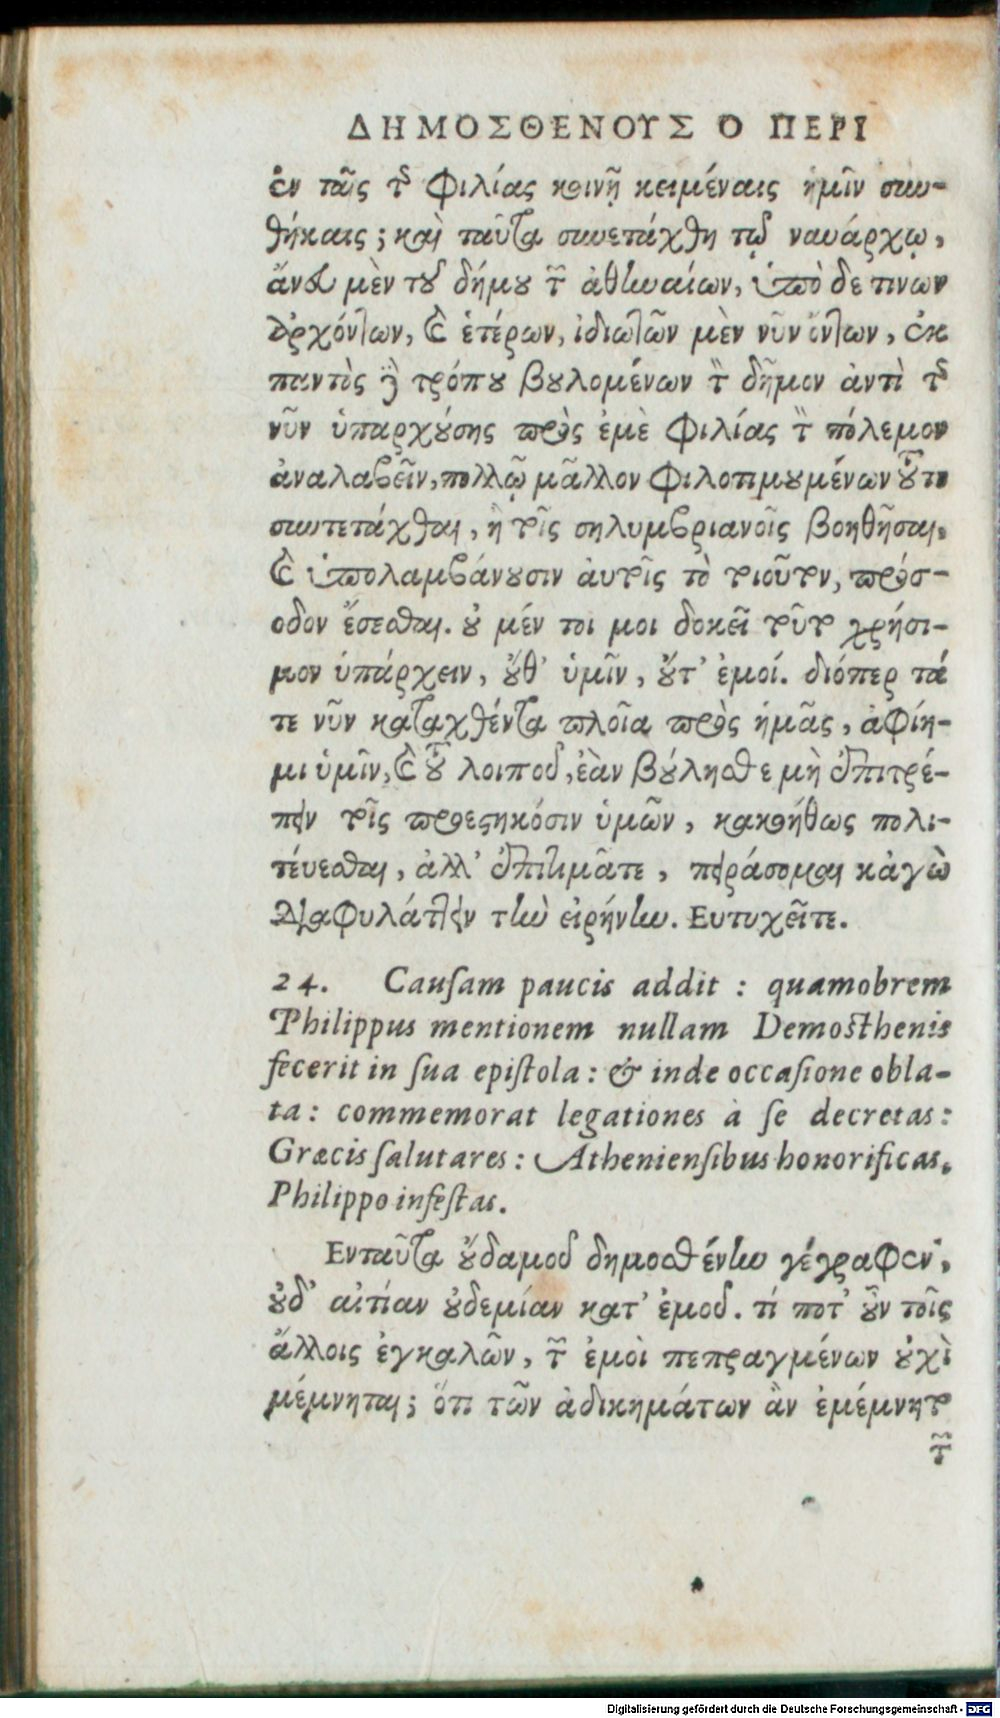 ΔΗΜΟΣΘΕΝΟΥΣ Ο ΠΕΡΙ
ἐν ταῖς τῆς φιλίας κοινῇ κειμέναις ἡμῖν συν-
θήκαις; καὶ ταῦτα συνετάχθη τῷ ναυάρχῳ,
ἄνευ μὲν τοῦ δήμου τῶν ἀθηναίων, ὑπὸ δε τινων
ἀρχόντων, καὶ ἑτέρων, ἰδιωτῶν μὲν νῦν ὄντων, ἐκ
παντὸς δὲ τρόπου βουλομένων τὸν δῆμον ἀντὶ τῆς
νῦν ὑπαρχούσης πρὸς ἐμὲ φιλίας τὸν πόλεμον
ἀναλαβεῖν, πολλῷ μᾶλλον φιλοτιμουμένων τοῦτο
συντετάχθαι, ἢ τοῖς σηλυμβριανοῖς βοηθῆσαι.
καὶ ὑπολαμβάνουσιν ἀυτοῖς τὸ τοιοῦτον, πρόσ-
οδον ἔσεσθαι. οὐ μέν τοι μοι δοκεῖ τοῦτο χρήσι-
μον ὑπάρχειν, οὔθ’ ὑμῖν, οὔτ’ ἐμοί. διόπερ τά
τε νῦν καταχθέντα πλοῖα πρὸς ἡμᾶς, ἀφίη-
μι ὑμῖν, καὶ τοῦ λοιποῦ, ἐὰν βούλησθε μὴ ἐπιτρέ-
πειν τοῖς προεστηκόσιν ὑμῶν, κακοήθως πολι-
τέυεσθαι, ἀλλ’ ἐπιτιμᾶτε, πειράσομαι κἀγὼ
διαφυλάττειν τὴν εἰρήνην. Ευτυχεῖτε.
24. Causam paucis addit : quamobrem
Philippus mentionem nullam Demosthenis
fecerit in sua epistola : & inde occasione obla-
ta : commemorat legationes à se decretas :
Græcis salutares : Atheniensibus honorificas,
Philippo infestas.
Ενταῦτα οὔδαμοῦ δημοσθένην γέγραφεν,
οὐδ’ αἰτίαν οὐδεμίαν κατ’ ἐμοῦ. τί ποτ’ οὖν τοῖς
ἄλλοις ἐγκαλῶν, τῶν ἐμοὶ πεπραγμένων οὐχὶ
μέμνηται; ὅτι τῶν ἀδικημάτων ἂν ἐμέμνητο
τῶν
Digitalisierung gefördert durch die Deutsche Forschungsgemeinschaft - DFG